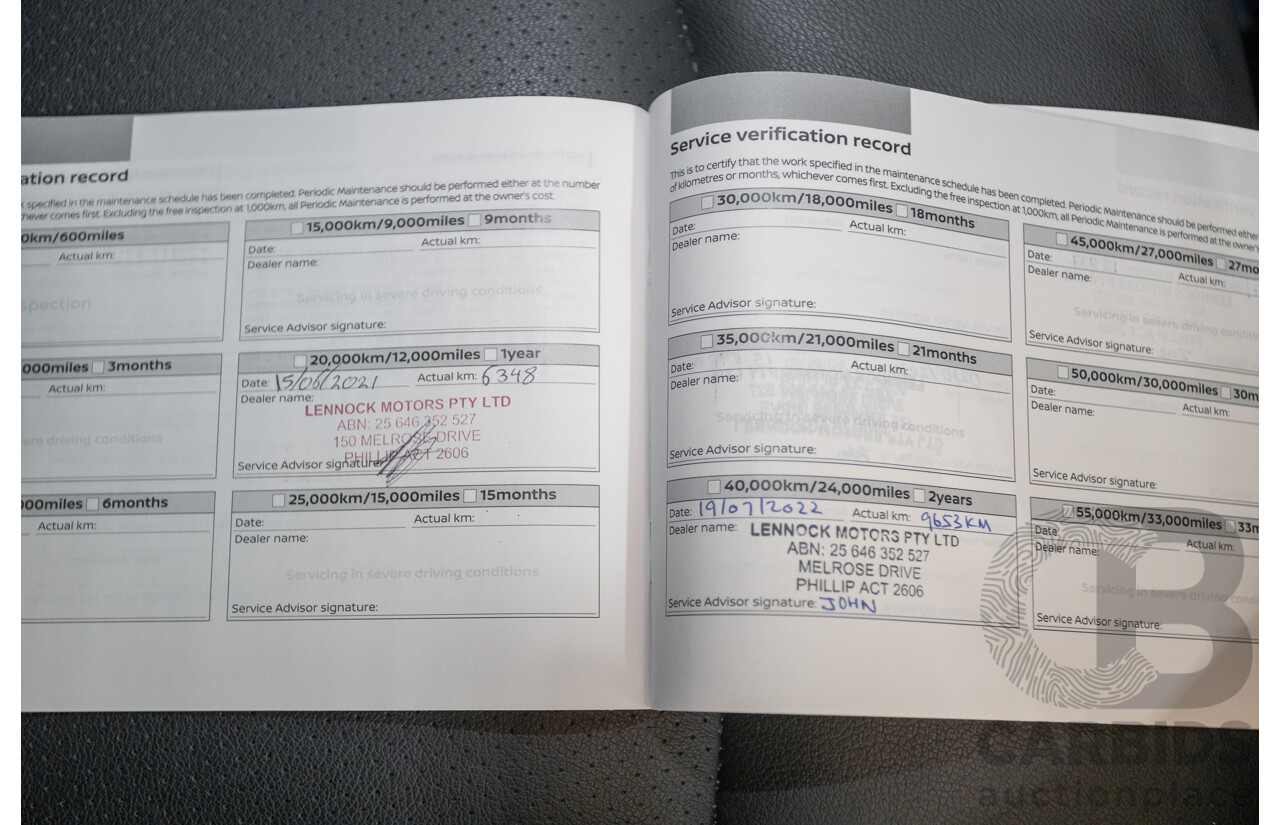 ation record
specified in the maintenance schedule has been completed. Periodic Maintenance should be performed either at the number
never comes first. Excluding the free inspection at 1,000km, all Periodic Maintenance is performed at the owner's cost.
0km/600miles
Actual km:
spection
000miles 3months
Actual km:
vere driving conditions
000miles 6months
Actual km:
15,000km/9,000miles 9months
Date: Actual km:
Dealer name:
Servicing in severe driving conditions
Service Advisor signature:
20,000km/12,000miles 1year
Date: 15/06/2021 Actual km: 6348
Dealer name:
LENNOCK MOTORS PTY LTD
ABN: 25 646 352 527
150 MELROSE DRIVE
PHILLIP ACT 2606
Service Advisor signature:
25,000km/15,000miles 15months
Date: Actual km:
Dealer name:
Servicing in severe driving conditions
Service Advisor signature:
Service verification record
This is to certify that the work specified in the maintenance schedule has been completed. Periodic Maintenance should be performed either
of kilometres or months, whichever comes first. Excluding the free inspection at 1,000km, all Periodic Maintenance is performed at the owner's
30,000km/18,000miles 18months
Date: Actual km:
Dealer name:
Service Advisor signature:
35,000km/21,000miles 21months
Date: Actual km:
Dealer name:
Servicing in severe driving conditions
Service Advisor signature:
40,000km/24,000miles 2years
Date: 19/07/2022 Actual km: 9653KM
Dealer name: LENNOCK MOTORS PTY LTD
ABN: 25 646 352 527
MELROSE DRIVE
PHILLIP ACT 2606
Service Advisor signature: JOHN
45,000km/27,000miles 27mo
Date: Actual km:
Dealer name:
Servicing in severe driving conditio
Service Advisor signature:
50,000km/30,000miles 30m
Date: Actual km:
Dealer name:
Service Advisor signature:
55,000km/33,000miles 33m
Date: Actual km:
Dealer name:
Servicing in severe driving cond
Service Advisor signature:
CB
CARBIDS
auctionplace